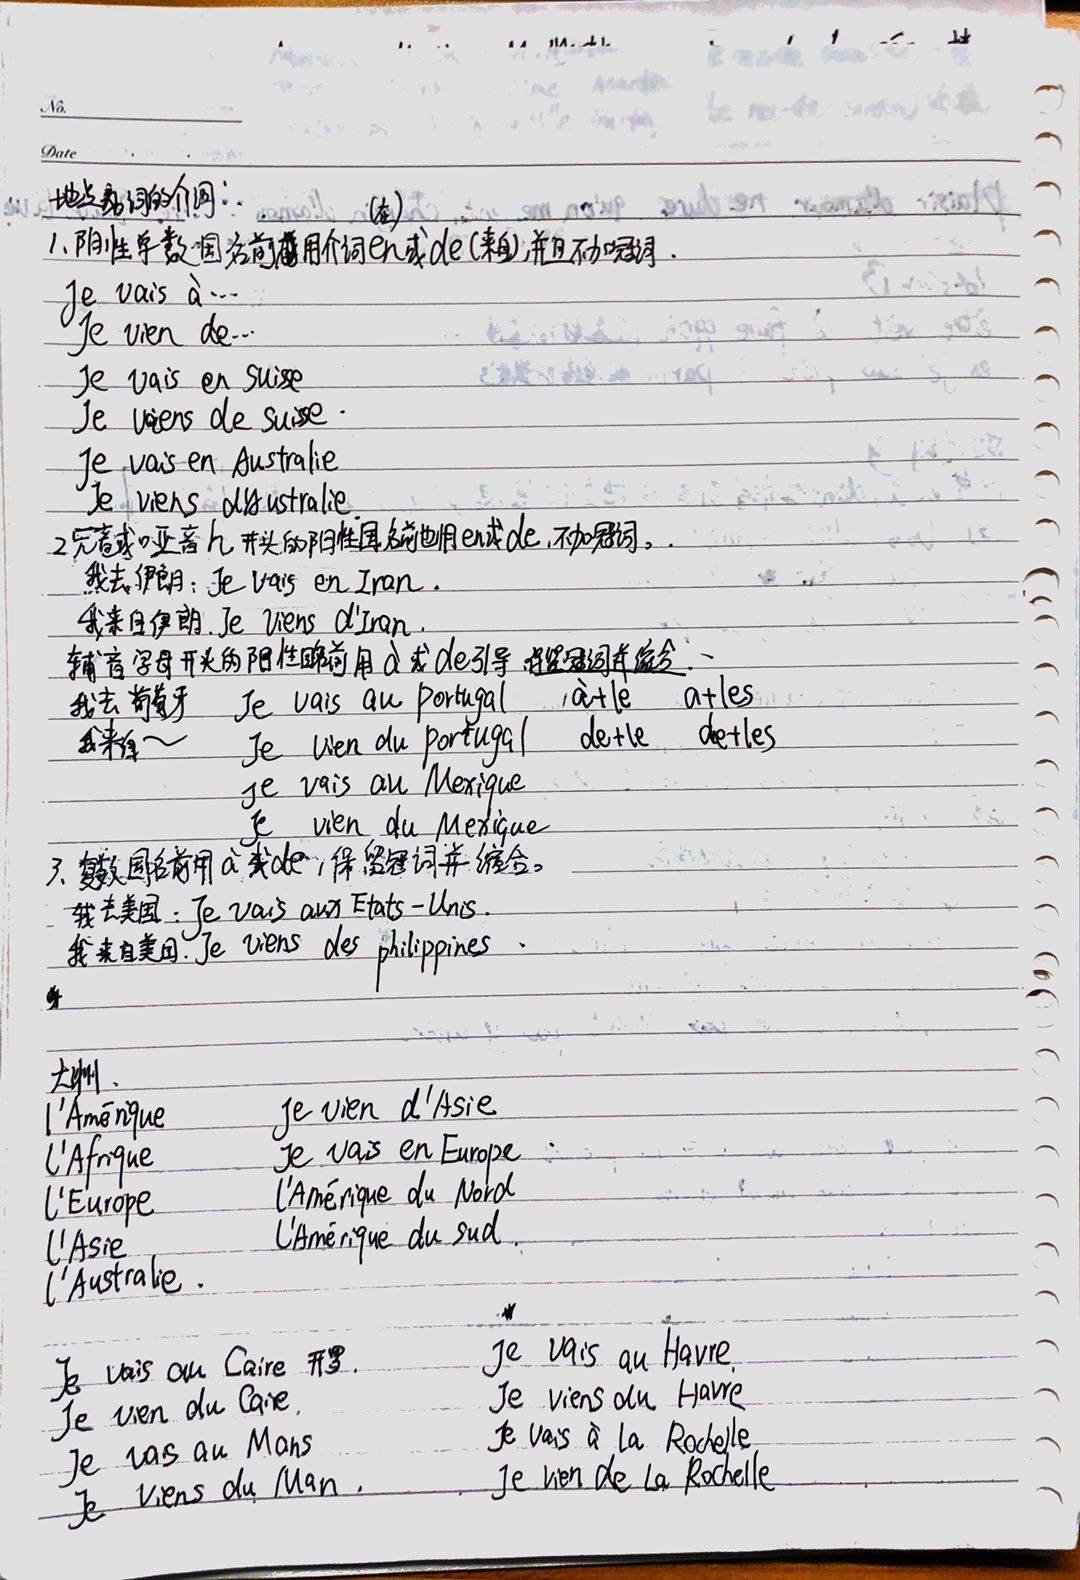 No.
Date
地点名词的介词:
(在)
1、阴性单数国名前用介词en或de(来自),并且不加冠词.
Je vais à...
Je vien de...
Je vais en Suisse
Je viens de suisse.
Je vais en Australie
Je viens d'Australie
2元音或哑音h开头的阳性国名前也用en或de,不加冠词。
我去伊朗:Je vais en Iran.
我来自伊朗.Je viens d'Iran.
辅音字母开头的阳性国名前用à或de引导 保留冠词并缩合.
我去葡萄牙 Je vais au Portugal à+le a+les
我来自~ Je vien du portugal de+le de+les
Je vais au Mexique
Je vien du Mexique
3、复数国名前用à或de,保留冠词并缩合。
我去美国:Je vais aux Etats-Unis.
我来自美国.Je viens des philippines.
大洲.
l'Amérique Je vien d'Asie
L'Afrique Je vais en Europe
l'Europe l'Amérique du Nord
l'Asie L'Amérique du sud.
l'Australie.
Je vais au Caire 开罗. Je vais au Havre.
Je vien du Caire. Je viens du Havre
Je vais au Mans Je vais à La Rochelle
Je viens du Man. Je vien de La Rochelle